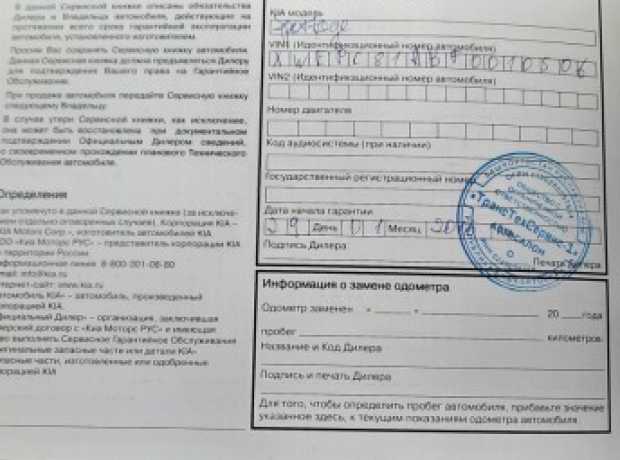 В данной Сервисной книжке описаны обязательства
Дилера и Владельца автомобиля, действующие на
протяжении всего срока гарантийной эксплуатации
автомобиля, установленного изготовителем.
Просим Вас сохранять Сервисную книжку автомобиля.
Данная Сервисная книжка должна предъявляться Дилеру
для подтверждения Вашего права на Гарантийное
Обслуживание.
При продаже автомобиля передайте Сервисную книжку
следующему Владельцу.
В случае утери Сервисной книжки, как исключение,
она может быть восстановлена при документальном
подтверждении Официальным Дилером сведений,
о своевременном прохождении планового Технического
Обслуживания автомобиля.
Определения
упомянуто в данной Сервисной книжке (за исключе-
отдельно оговоренных случаев), Корпорация KIA –
Motors Corp –, изготовитель автомобилей KIA
«Киа Моторс РУС» – представитель корпорации KIA
территории России
линия: 8-800-301-08-80
info@kia.ru
www.kia.ru
KIA» – автомобиль, произведенный
KIA.
Дилер» – организация, заключившая
договор с «Киа Моторс РУС» и имеющая
выполнять Сервисное Гарантийное Обслуживание
запасные части или детали KIA»
части, изготовленные или одобренные
KIA
KIA модель
Sportage
VIN1 (Идентификационный номер автомобиля)
VIN2 (Идентификационный номер автомобиля)
Номер двигателя
Код аудиосистемы (при наличии)
Государственный регистрационный номер
Дата начала гарантии
29 День 01 Месяц
Подпись Дилера
Печать Дилера
«ТрансТехСервис-
Информация о замене одометра
Одометр заменен « » 20 года
пробег километров.
Название и Код Дилера
Подпись и печать Дилера
Для того, чтобы определить пробег автомобиля, прибавьте значение
указанное здесь, к текущим показаниям одометра автомобиля